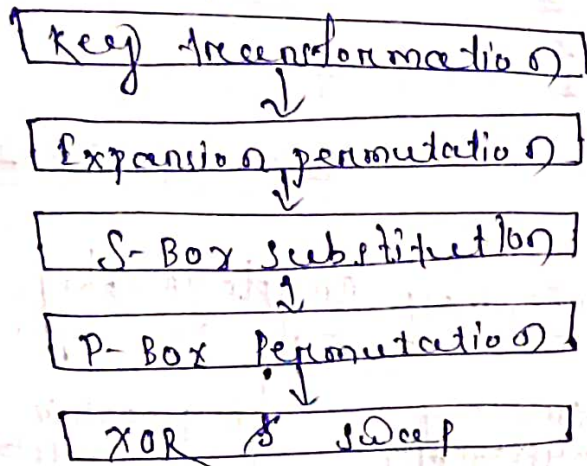 Key transformation
Expansion permutation
S-Box substitution
P-Box Permutation
XOR & swap